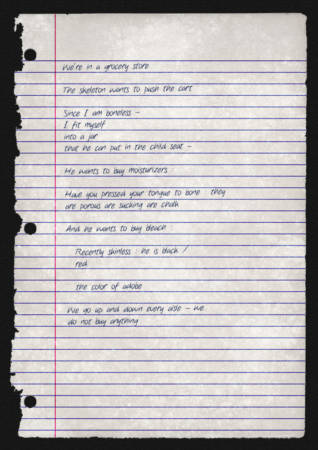 We're in a grocery store
The skeleton wants to push the cart
Since I am boneless –
I fit myself
into a jar
that he can put in the child seat –
He wants to buy moisturizers :
Have you pressed your tongue to bone : they
are porous are sucking are chalk
And he wants to buy bleach :
Recently skinless : he is black /
red
the color of adobe
We go up and down every aisle – we
do not buy anything